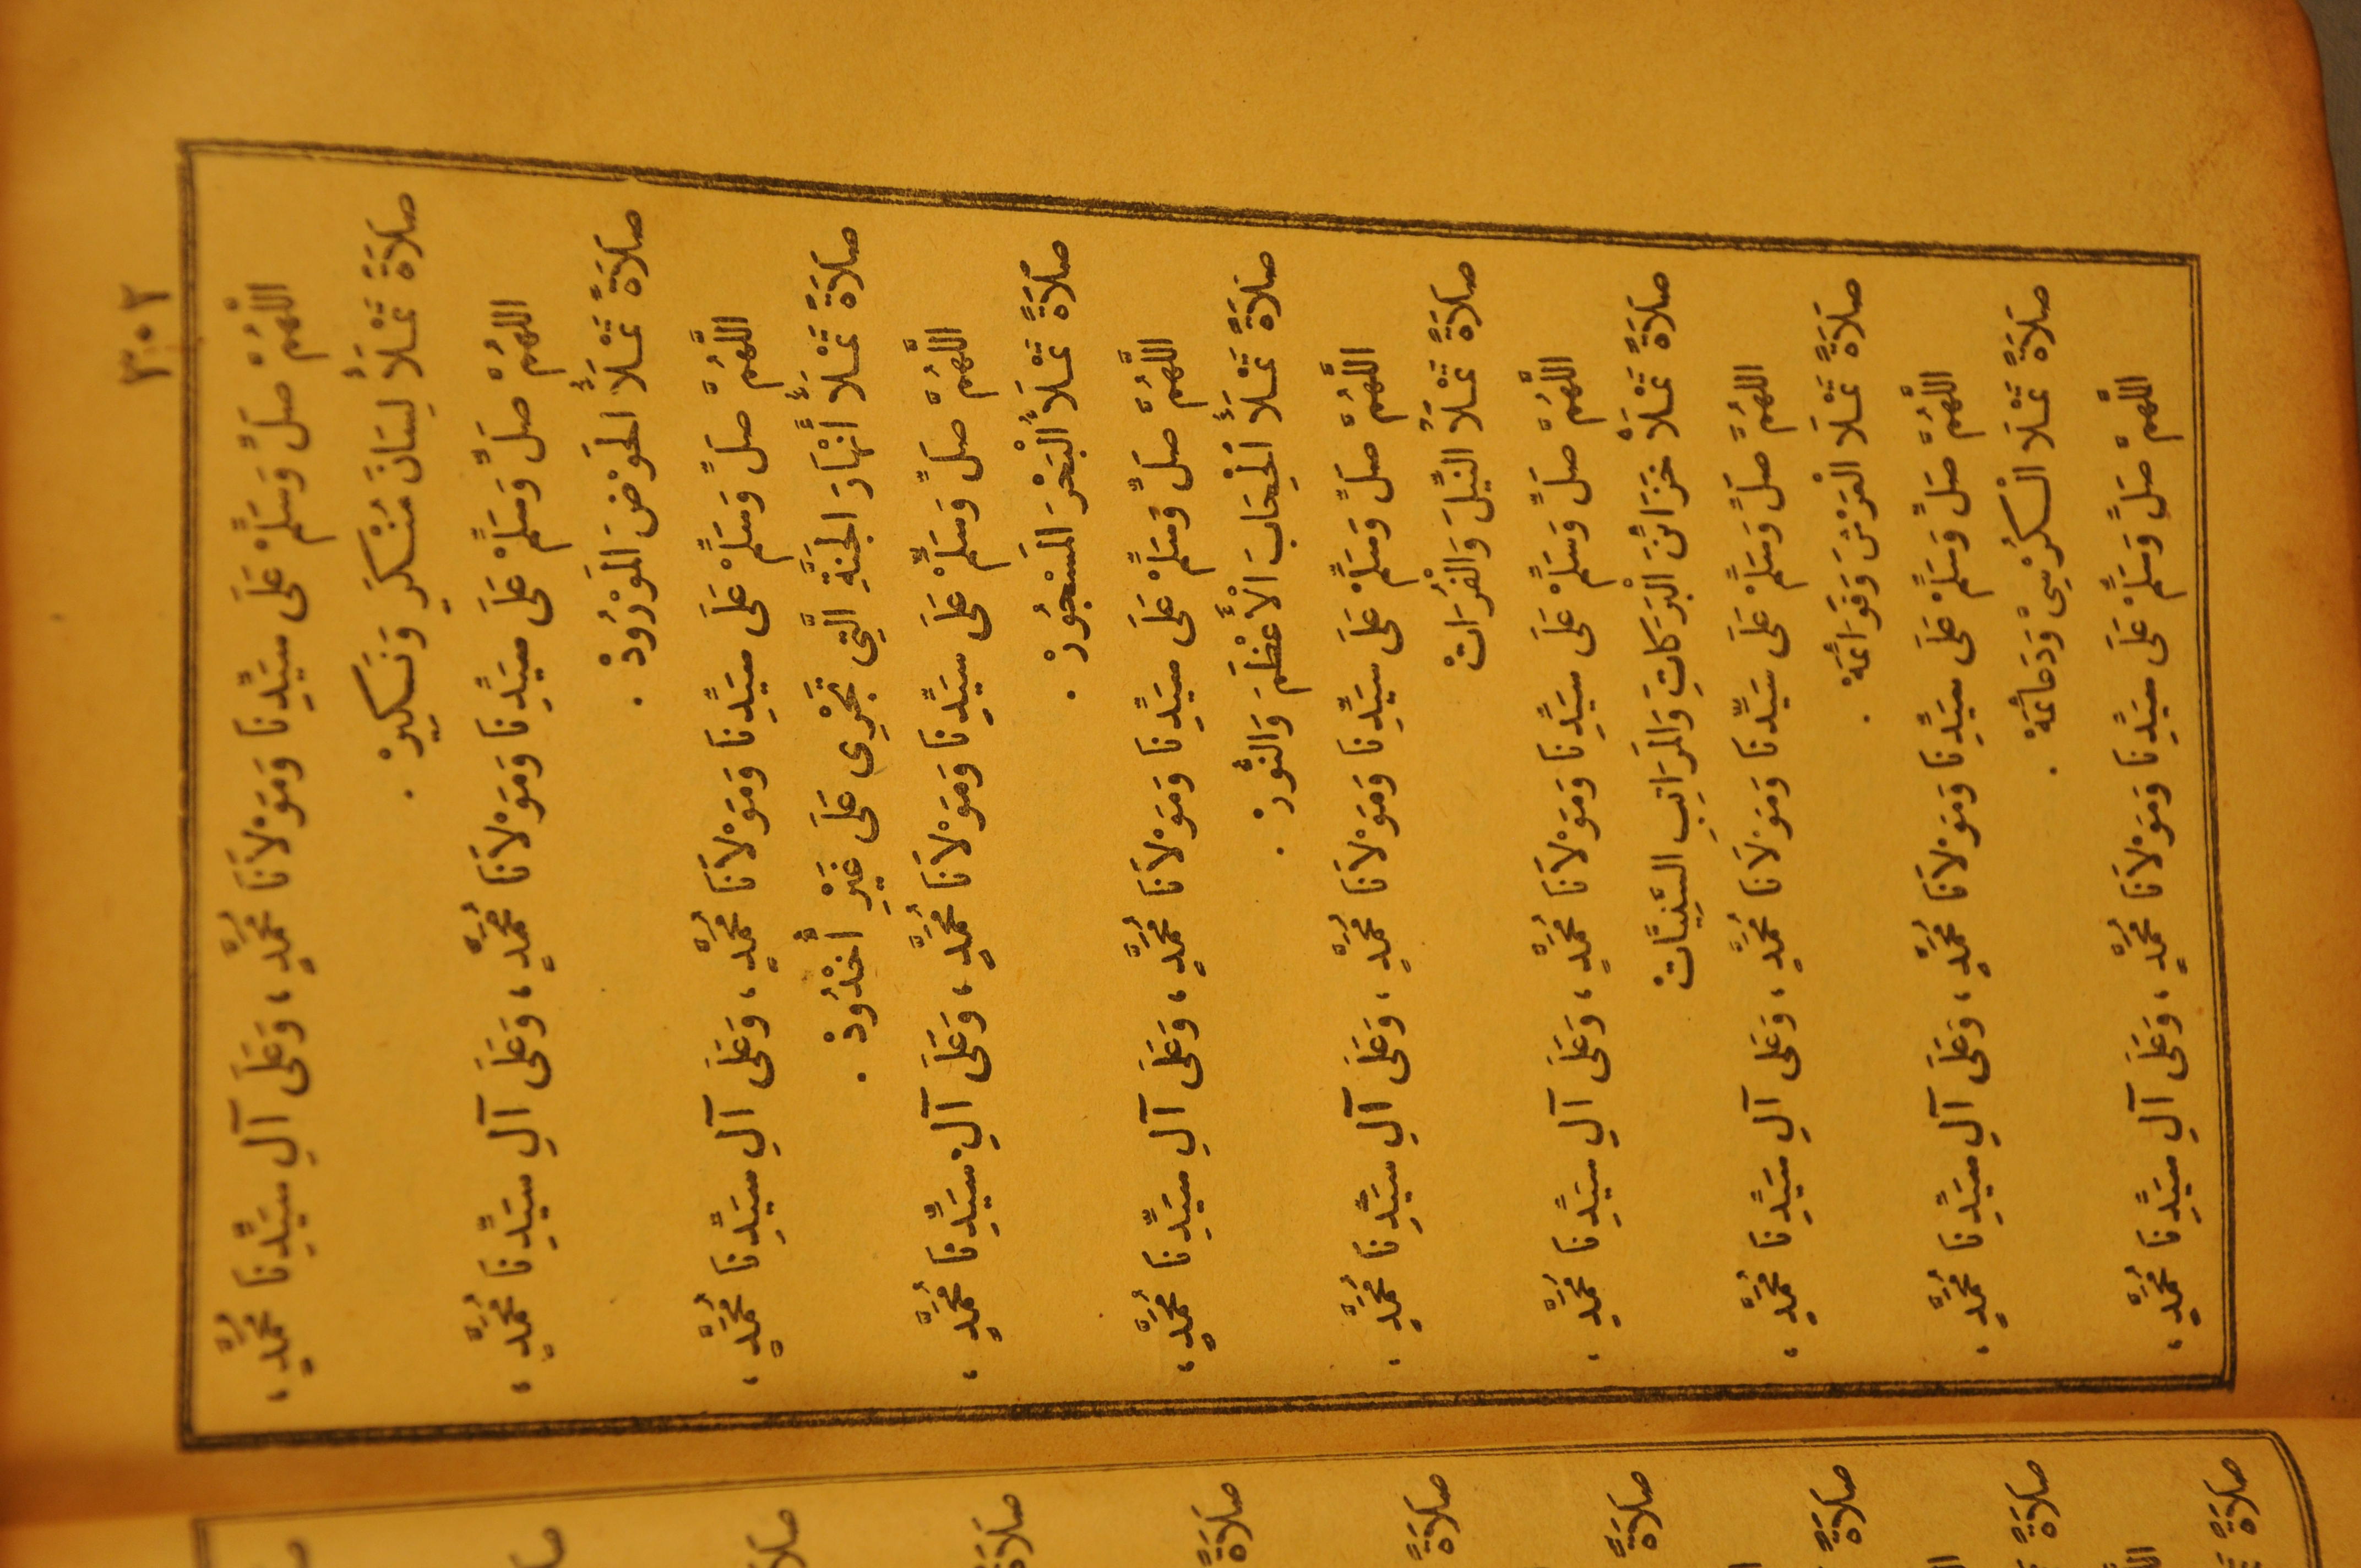 ٣٠٢
اللَّهُمَّ صَلِّ وَسَلِّمْ عَلَى سَيِّدِنَا وَمَوْلَانَا مُحَمَّدٍ، وَعَلَى آلِ سَيِّدِنَا مُحَمَّدٍ،
صَلَاةً تَمْلَأُ لِسَانَ مُنْكَرٍ وَنَكِيرْ .
اللَّهُمَّ صَلِّ وَسَلِّمْ عَلَى سَيِّدِنَا وَمَوْلَانَا مُحَمَّدٍ، وَعَلَى آلِ سَيِّدِنَا مُحَمَّدٍ،
صَلَاةً تَمْلَأُ الْحَوْضَ الْمَوْرُودْ .
اللَّهُمَّ صَلِّ وَسَلِّمْ عَلَى سَيِّدِنَا وَمَوْلَانَا مُحَمَّدٍ، وَعَلَى آلِ سَيِّدِنَا مُحَمَّدٍ،
صَلَاةً تَمْلَأُ أَنْهَارَ الْجَنَّةِ الَّتِي تَجْرِى عَلَى غَيْرِ أُخْدُودْ .
اللَّهُمَّ صَلِّ وَسَلِّمْ عَلَى سَيِّدِنَا وَمَوْلَانَا مُحَمَّدٍ، وَعَلَى آلِ سَيِّدِنَا مُحَمَّدٍ،
صَلَاةً تَمْلَأُ الْبَحْرَ الْمَسْجُورْ .
اللَّهُمَّ صَلِّ وَسَلِّمْ عَلَى سَيِّدِنَا وَمَوْلَانَا مُحَمَّدٍ، وَعَلَى آلِ سَيِّدِنَا مُحَمَّدٍ،
صَلَاةً تَمْلَأُ الْحِجَابَ الْأَعْظَمَ وَالنُّورْ .
اللَّهُمَّ صَلِّ وَسَلِّمْ عَلَى سَيِّدِنَا وَمَوْلَانَا مُحَمَّدٍ، وَعَلَى آلِ سَيِّدِنَا مُحَمَّدٍ،
صَلَاةً تَمْلَأُ النِّيلَ وَالْفُرَاتْ
اللَّهُمَّ صَلِّ وَسَلِّمْ عَلَى سَيِّدِنَا وَمَوْلَانَا مُحَمَّدٍ، وَعَلَى آلِ سَيِّدِنَا مُحَمَّدٍ،
صَلَاةً تَمْلَأُ خَزَائِنَ الْبَرَكَاتِ وَالْمَرَاتِبِ السَّنِيَّاتْ
اللَّهُمَّ صَلِّ وَسَلِّمْ عَلَى سَيِّدِنَا وَمَوْلَانَا مُحَمَّدٍ، وَعَلَى آلِ سَيِّدِنَا مُحَمَّدٍ،
صَلَاةً تَمْلَا الْعَرْشَ وَقَوَائِمَهْ .
اللَّهُمَّ صَلِّ وَسَلِّمْ عَلَى سَيِّدِنَا وَمَوْلَانَا مُحَمَّدٍ، وَعَلَى آلِ سَيِّدِنَا مُحَمَّدٍ،
صَلَاةً تَمْلَا الْكُرْسِىَّ وَدَعَائِمَهْ .
اللَّهُمَّ صَلِّ وَسَلِّمْ عَلَى سَيِّدِنَا وَمَوْلَانَا مُحَمَّدٍ، وَعَلَى آلِ سَيِّدِنَا مُحَمَّدٍ،
صَلَاةً
صَلَاةً
صَلَاةً
صَلَاةً
صَلَاةً
صَلَاةً
صَلَاةً